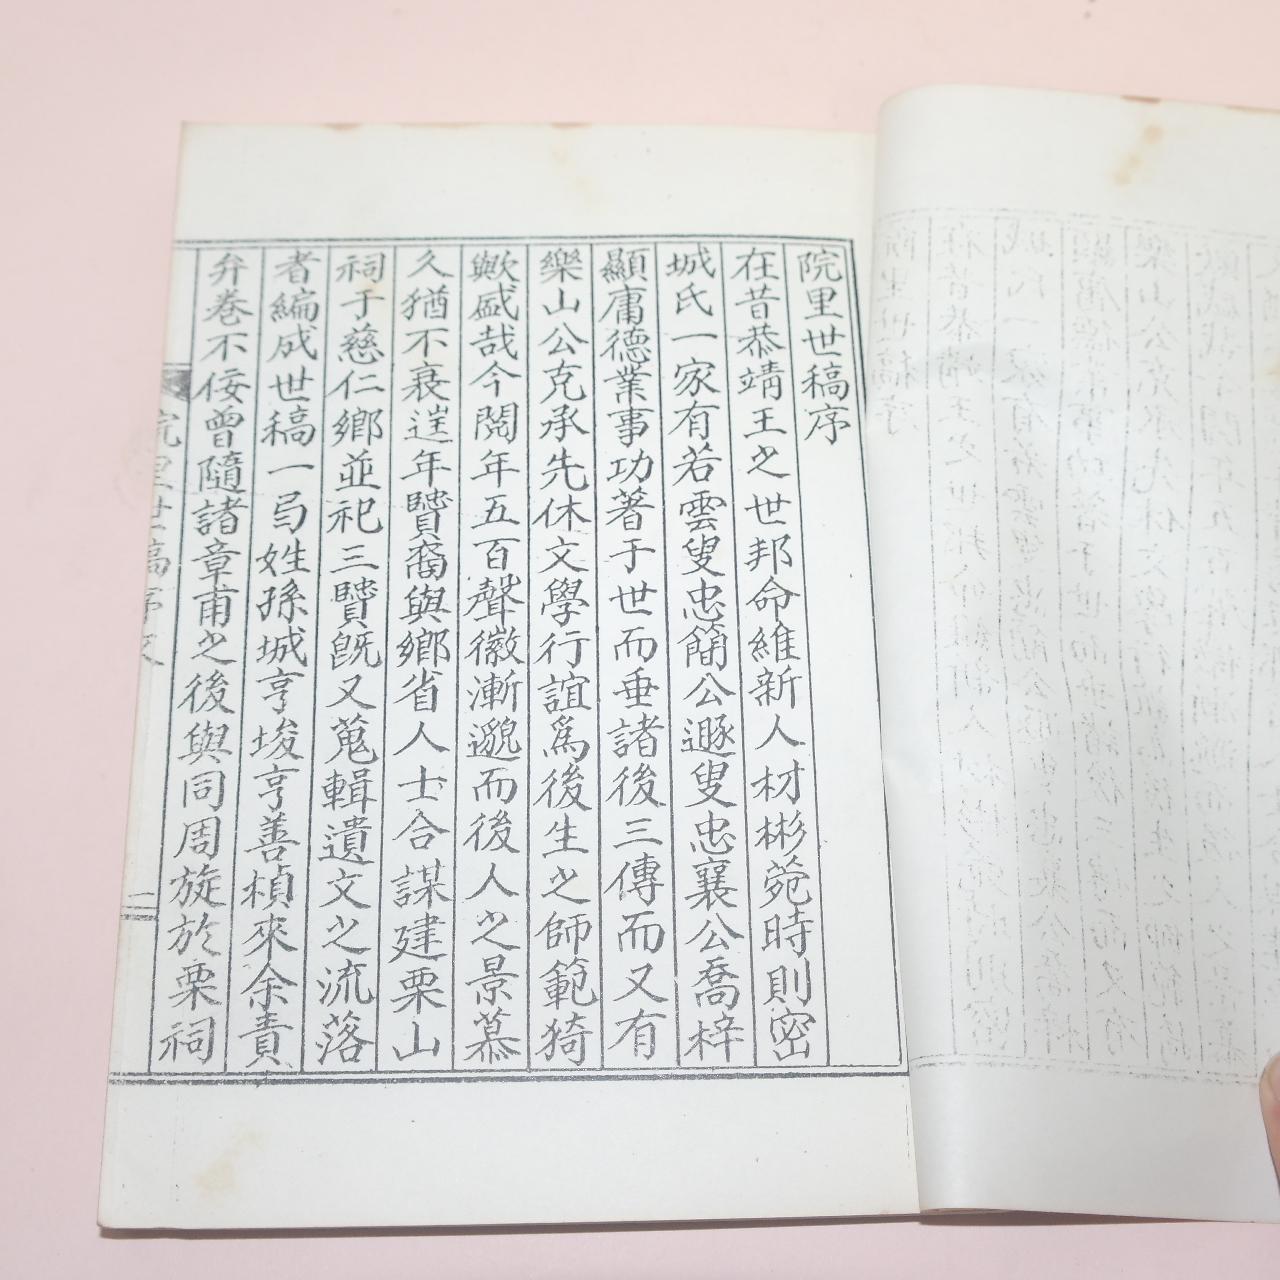 院里世稿序
在昔恭靖王之世邦命維新人材彬菀時則密
城氏一家有若雲叟忠簡公遯叟忠襄公喬梓
顯庸德業事功著于世而垂諸後三傳而又有
樂山公克承先休文學行誼爲後生之師範猗
歟盛哉今閱年五百聲徽漸邈而後人之景慕
久猶不衰逬年贒裔與鄕省人士合謀建栗山
祠于慈仁鄕並祀三贒旣又蒐輯遺文之流落
者編成世稿一弓姓孫城亨埈亨善楨來余責
弁卷不佞曾隨諸章甫之後與同周旋於栗祠
院里世稿序文
二